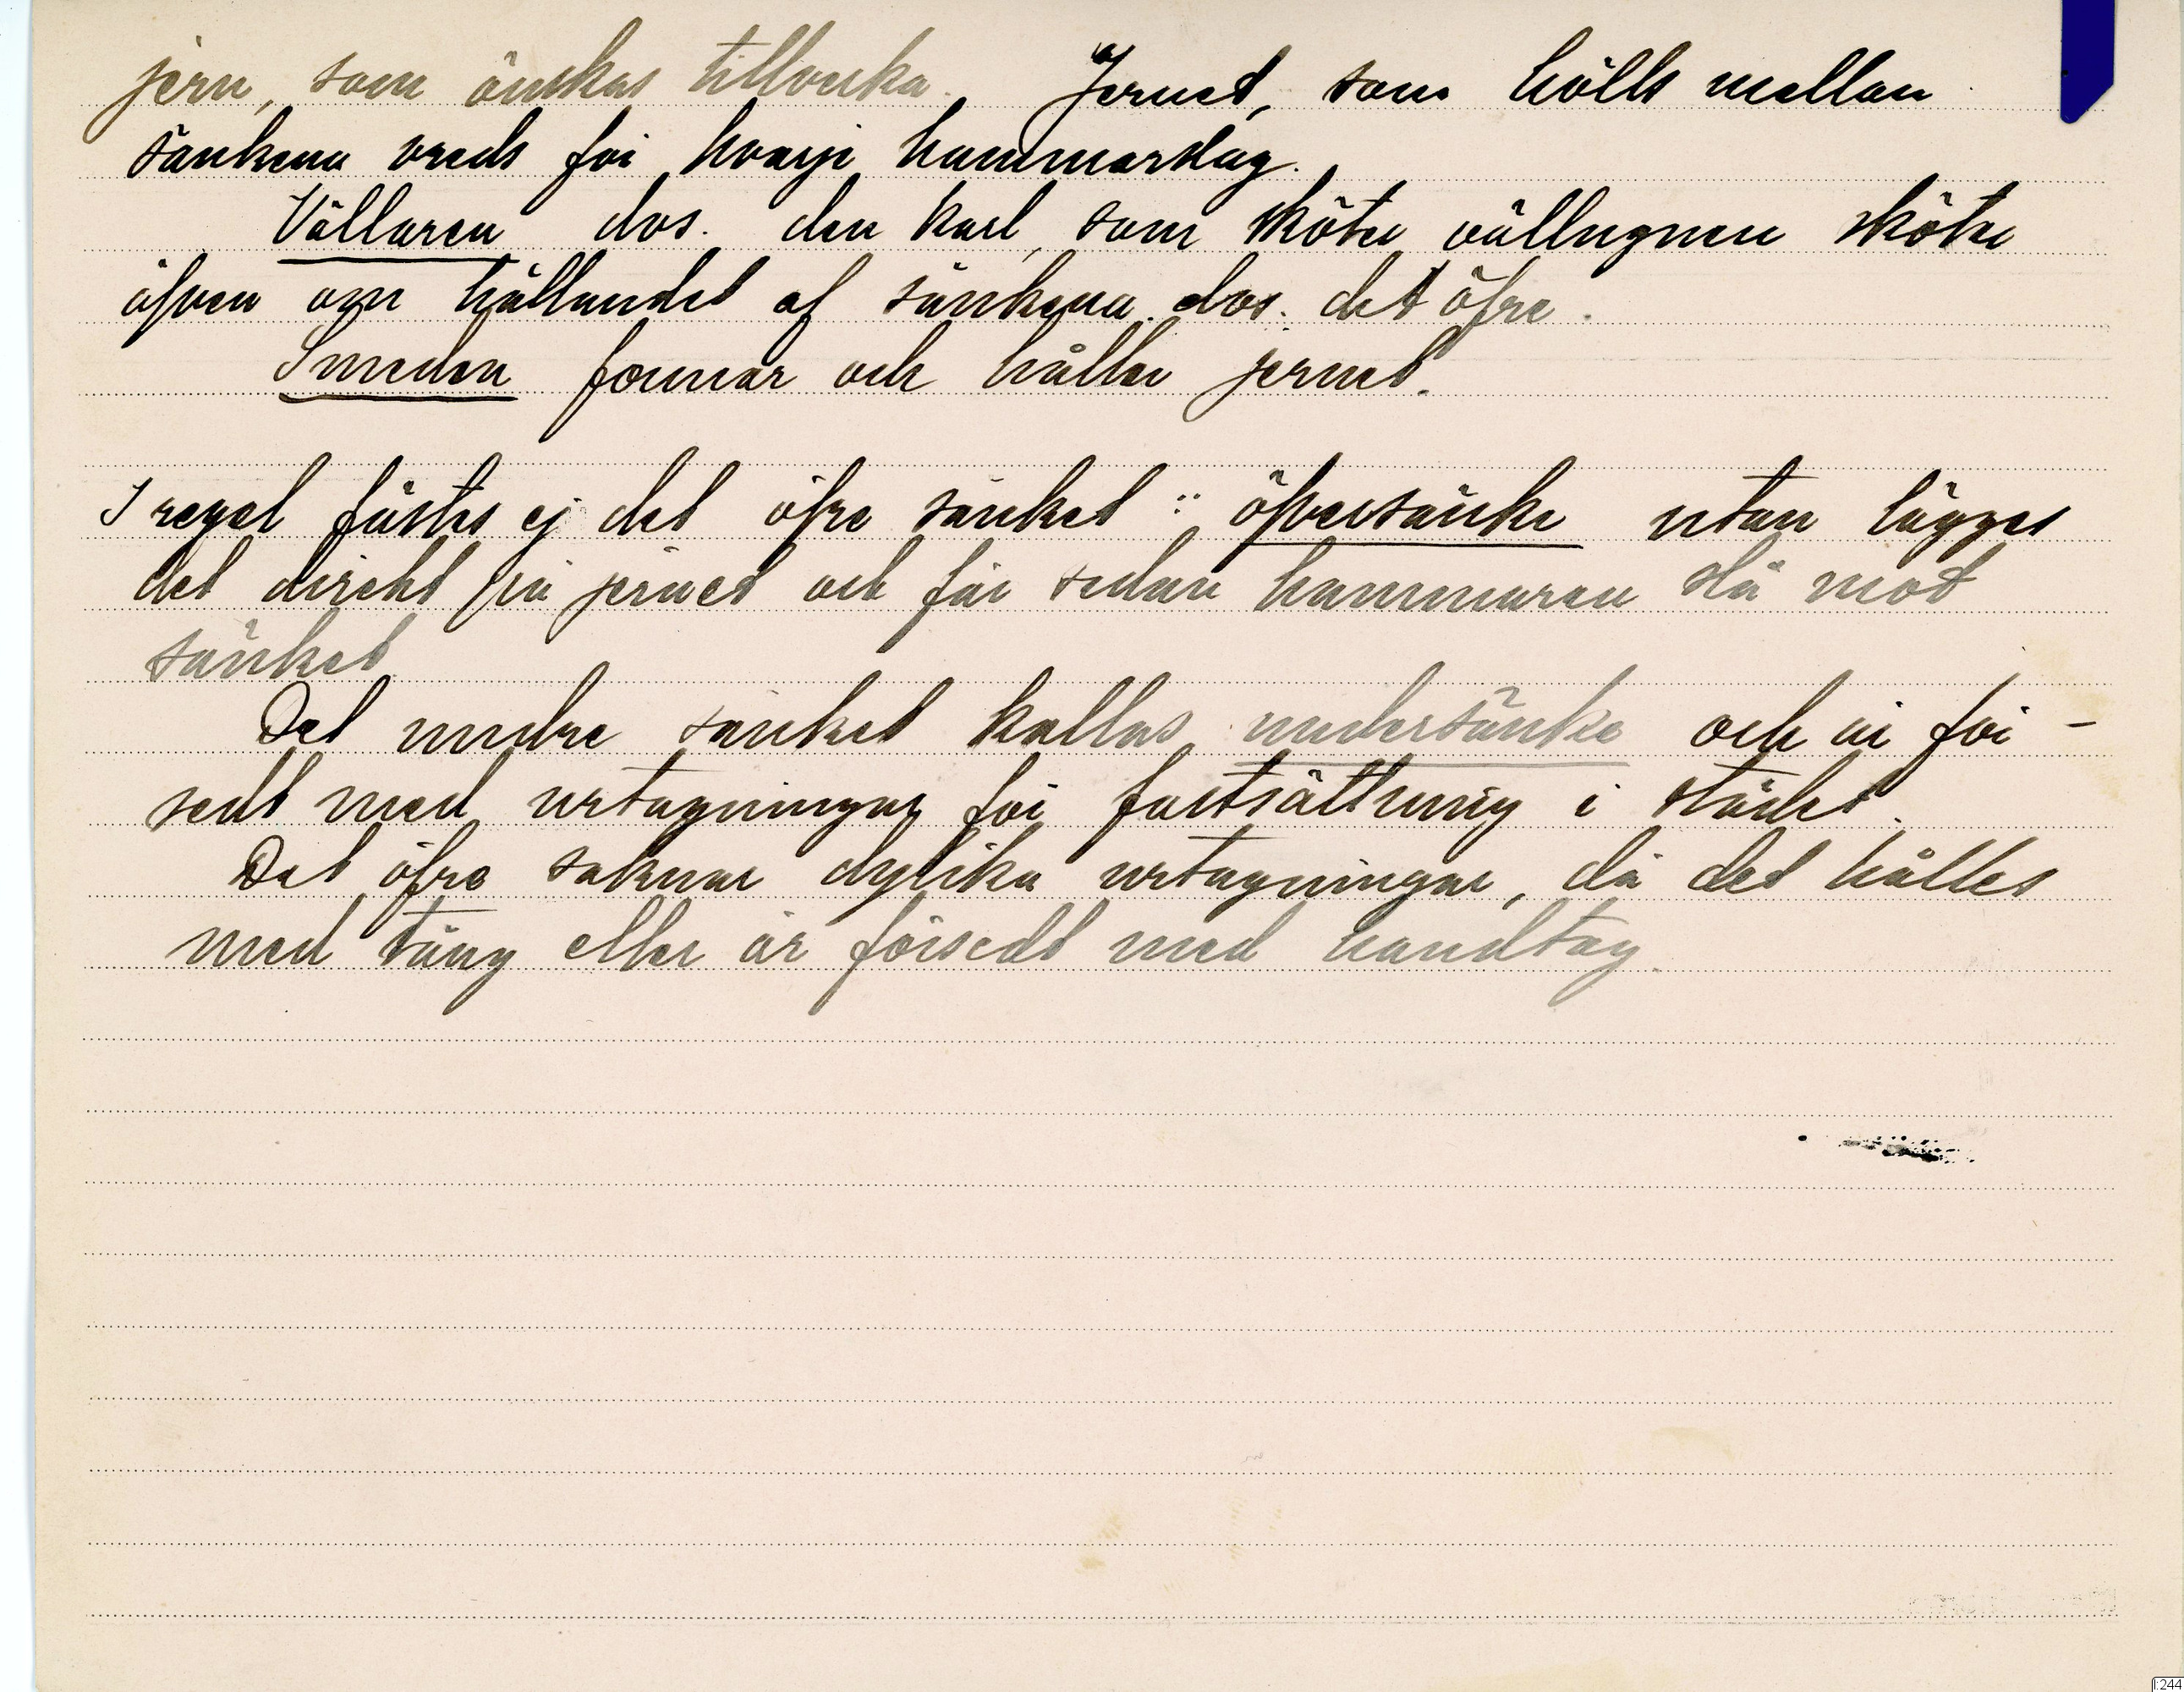 jern, som önskas tillverka. Jernet, som hölls mellan
sänkena vreds för hvarje hammarslag.
Vällaren dvs. den karl, som skötte vällugnen skötte
äfven om hållandet af sänkena dvs. det öfre.
Smeden formar och håller jernet.
I regel fästes ej det öfre sänket :: öfversänke utan lägges
det direkt på jernet och får sedan hammaren slå mot
sänket.
Det undre sänket kallas undersänke och är för-
sedt med urtagningar för fastsättning i städet.
Det öfre saknar dylika urtagningar, då det hålles
med tång eller är försedt med handtag.
1:244